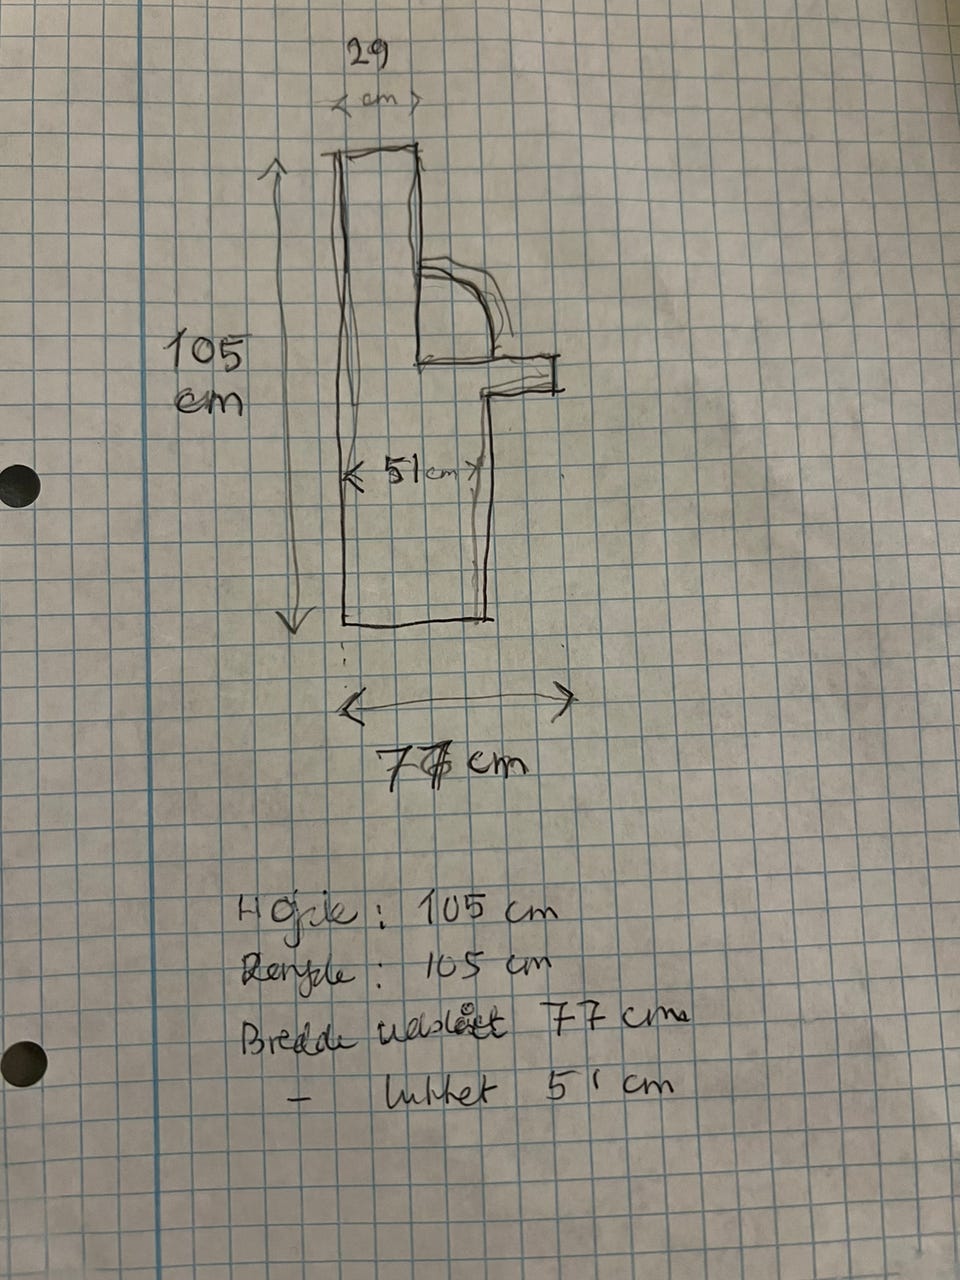 29
cm
105
cm
51 cm
77 cm
Højde : 105 cm
Længde : 105 cm
Bredde udslået 77 cm
- lukket 51 cm